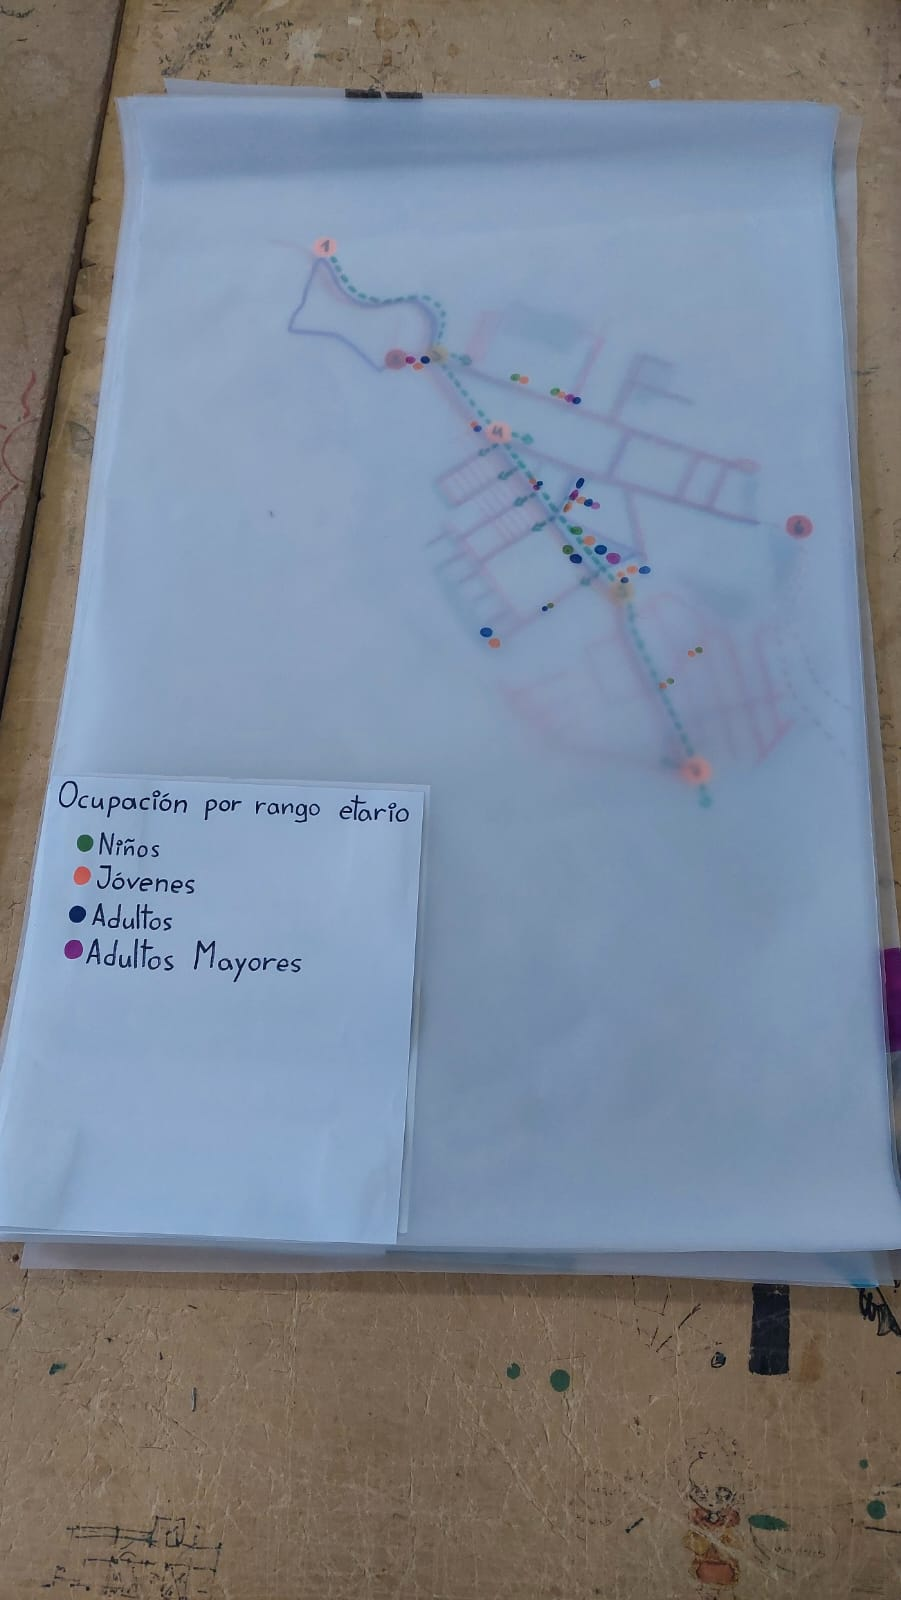 1
4
Ocupación por rango etario
Niños
Jóvenes
Adultos
Adultos Mayores